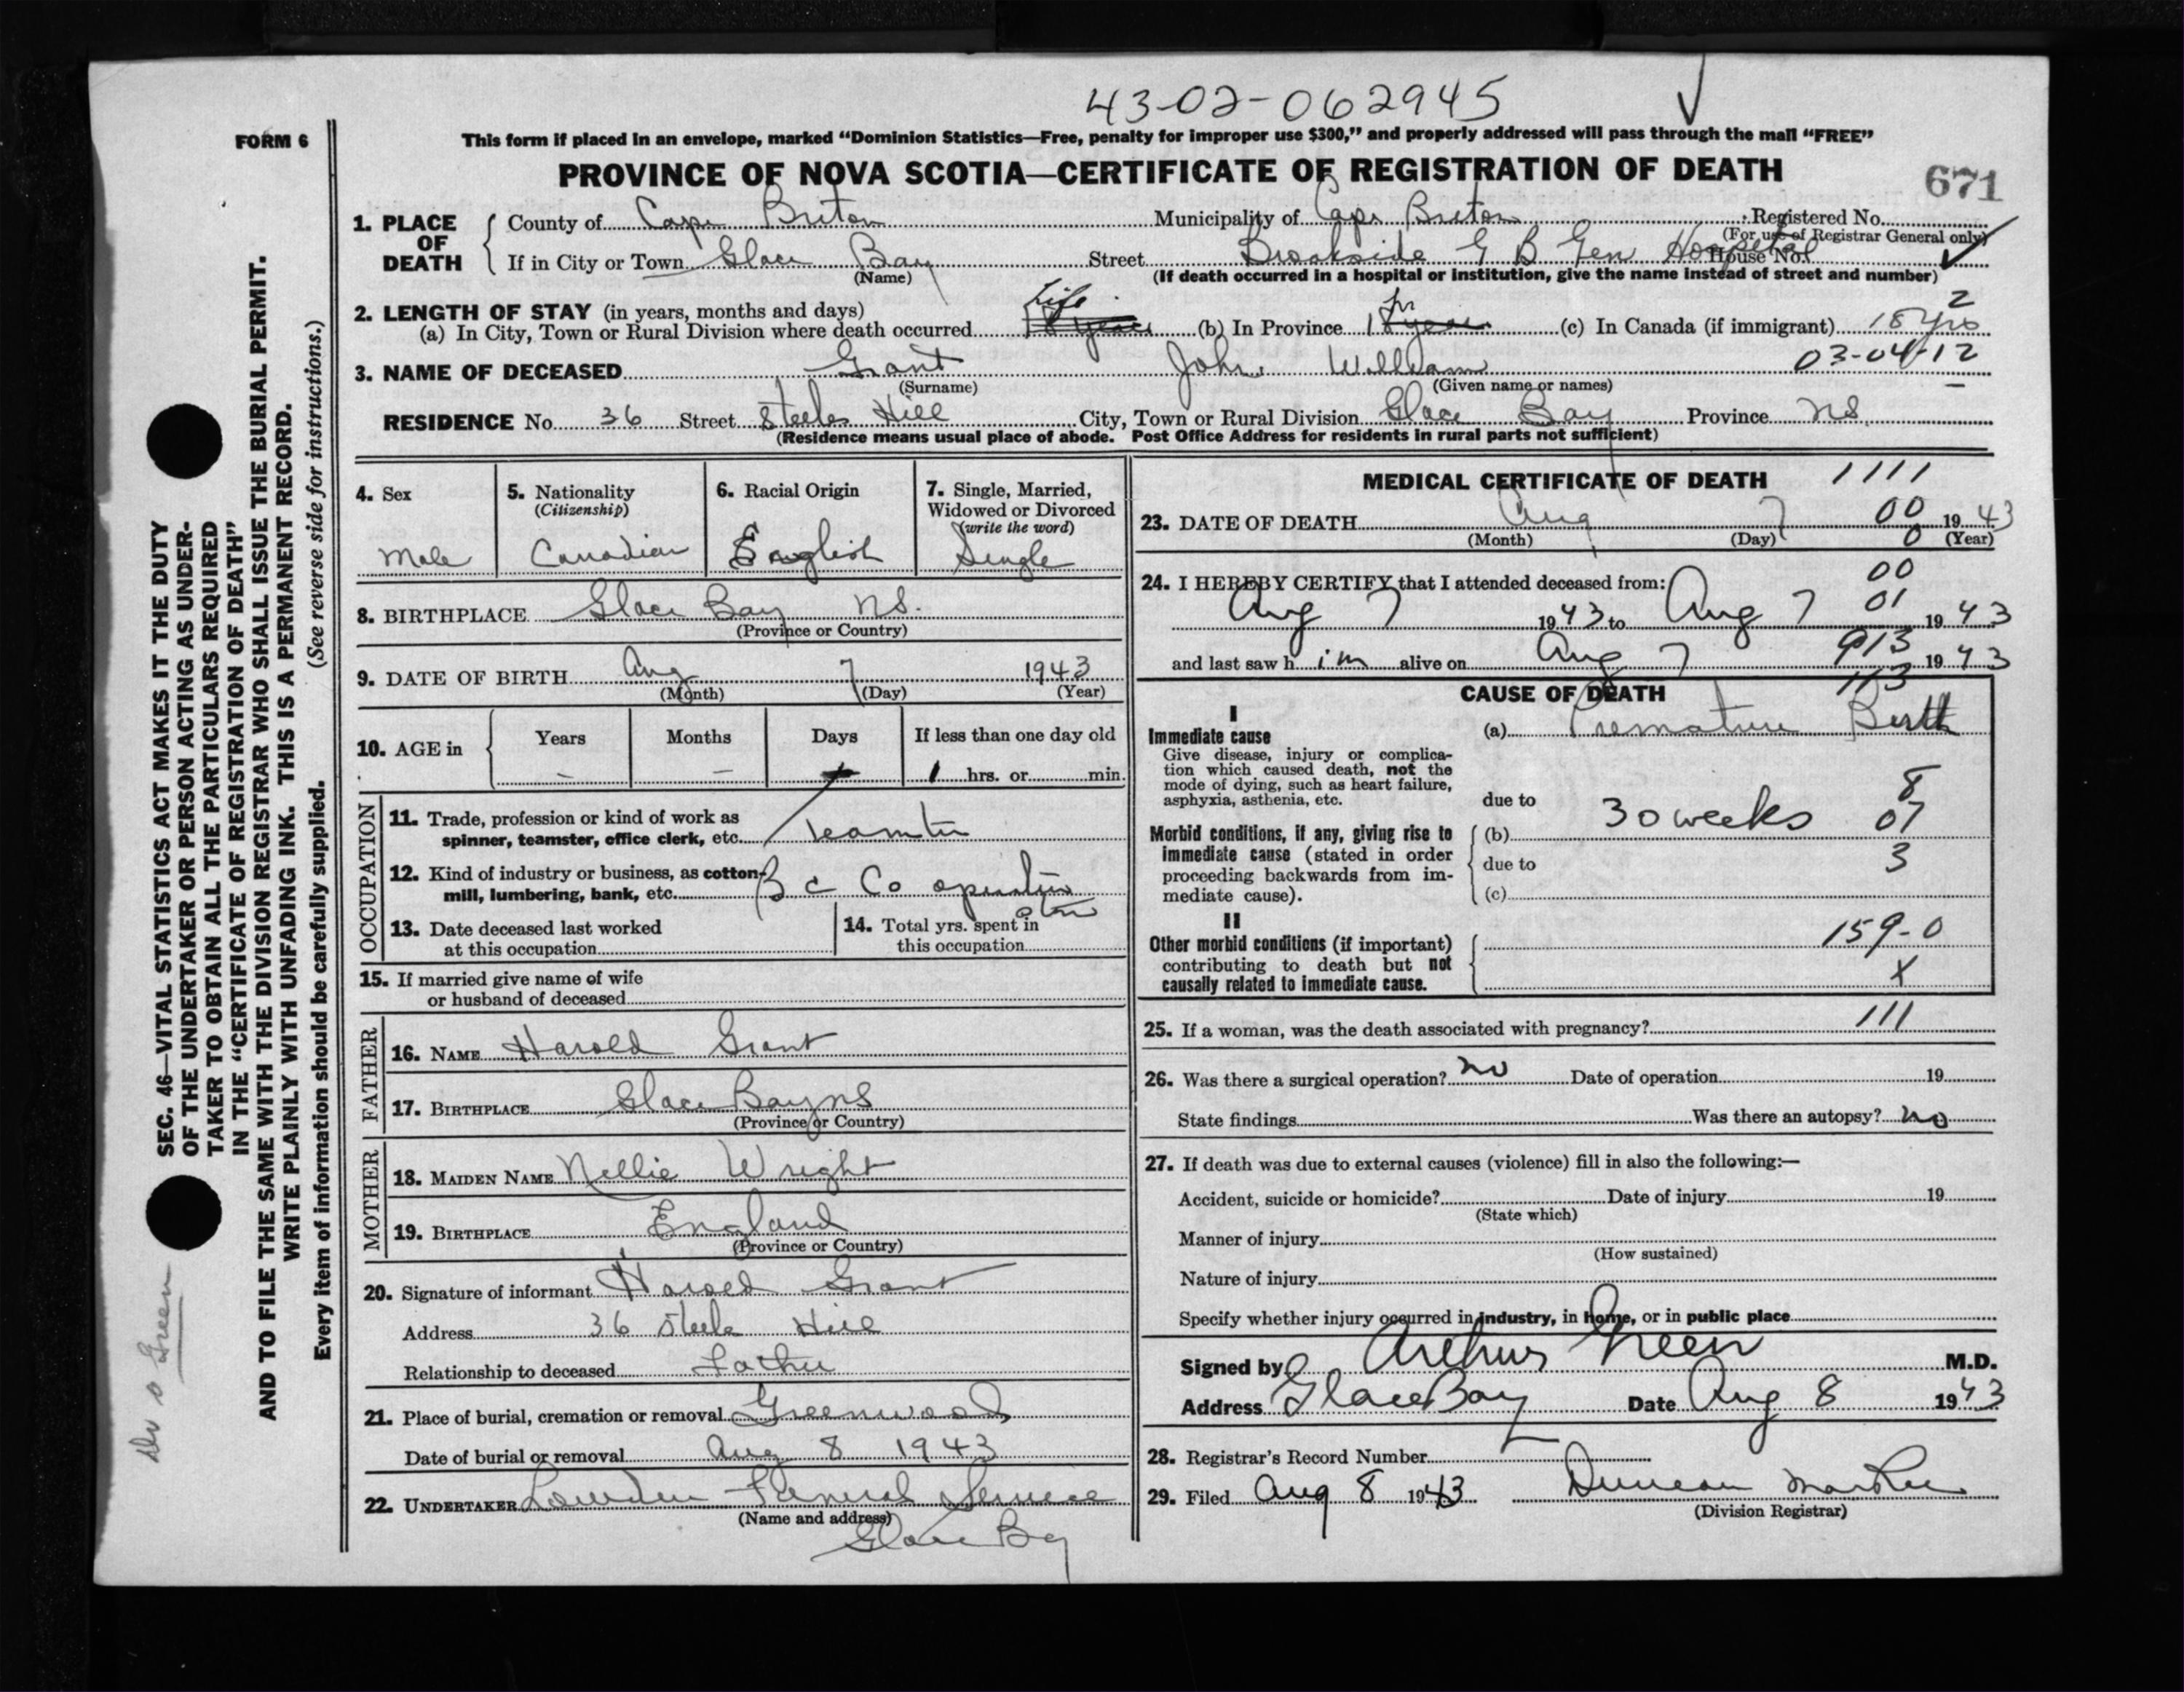 43-02-062945
FORM 6
This form if placed in an envelope, marked “Dominion Statistics—Free, penalty for improper use $300,” and properly addressed will pass through the mail “FREE”
PROVINCE OF NOVA SCOTIA—CERTIFICATE OF REGISTRATION OF DEATH
671
1. PLACE OF DEATH
County of Cape Breton Municipality of Cape Breton Registered No.
(For use of Registrar General only)
If in City or Town Glace Bay Street Brookside G B Gen Hospital House No.
(Name) (If death occurred in a hospital or institution, give the name instead of street and number)
2. LENGTH OF STAY (in years, months and days)
2
(a) In City, Town or Rural Division where death occurred Life 18 years (b) In Province 1 hr 8 years (c) In Canada (if immigrant) 18 yrs
3. NAME OF DECEASED Grant John William 03-04-12
(Surname) (Given name or names)
RESIDENCE No. 36 Street Steeles Hill City, Town or Rural Division Glace Bay Province NS.
(Residence means usual place of abode. Post Office Address for residents in rural parts not sufficient)
4. Sex
Male
5. Nationality
(Citizenship)
Canadian
6. Racial Origin
English
7. Single, Married,
Widowed or Divorced
(write the word)
Single
8. BIRTHPLACE Glace Bay NS.
(Province or Country)
9. DATE OF BIRTH Aug 7 1943
(Month) (Day) (Year)
10. AGE in
Years Months Days If less than one day old
— — 1 hrs. or min.
OCCUPATION
11. Trade, profession or kind of work as
spinner, teamster, office clerk, etc. Teamster
12. Kind of industry or business, as cotton-
mill, lumbering, bank, etc. B C Co operative
store
13. Date deceased last worked
at this occupation
14. Total yrs. spent in
this occupation
15. If married give name of wife
or husband of deceased
FATHER
16. NAME Harold Grant
17. BIRTHPLACE Glace Bay NS
(Province or Country)
MOTHER
18. MAIDEN NAME Nellie Wright
19. BIRTHPLACE England
(Province or Country)
20. Signature of informant Harold Grant
Address 36 Steele Hill
Relationship to deceased Father
21. Place of burial, cremation or removal Greenwood
Date of burial or removal Aug 8 1943
22. UNDERTAKER Lowden Funeral Service
(Name and address)
Glace Bay
MEDICAL CERTIFICATE OF DEATH 1111
23. DATE OF DEATH Aug 7 00 1943
(Month) (Day) 0 (Year)
24. I HEREBY CERTIFY that I attended deceased from: 00
01
Aug 7 1943 to Aug 7 1943
913
and last saw him alive on Aug 7 1943
113
CAUSE OF DEATH
I
Immediate cause
Give disease, injury or complica-
tion which caused death, not the
mode of dying, such as heart failure,
asphyxia, asthenia, etc.
(a) Premature Birth
due to 8
Morbid conditions, if any, giving rise to
immediate cause (stated in order
proceeding backwards from im-
mediate cause).
(b) 30 weeks 07
due to 3
(c)
II
Other morbid conditions (if important)
contributing to death but not
causally related to immediate cause.
159-0
X
25. If a woman, was the death associated with pregnancy? 111
26. Was there a surgical operation? no Date of operation 19
State findings Was there an autopsy? no
27. If death was due to external causes (violence) fill in also the following:—
Accident, suicide or homicide? Date of injury 19
(State which)
Manner of injury
(How sustained)
Nature of injury
Specify whether injury occurred in industry, in home, or in public place
Signed by Arthur Green M.D.
Address Glace Bay Date Aug 8 1943
28. Registrar’s Record Number
29. Filed Aug 8 1943 Duncan
(Division Registrar)
SEC. 46—VITAL STATISTICS ACT MAKES IT THE DUTY
OF THE UNDERTAKER OR PERSON ACTING AS UNDER-
TAKER TO OBTAIN ALL THE PARTICULARS REQUIRED
IN THE “CERTIFICATE OF REGISTRATION OF DEATH”
AND TO FILE THE SAME WITH THE DIVISION REGISTRAR WHO SHALL ISSUE THE BURIAL PERMIT.
WRITE PLAINLY WITH UNFADING INK. THIS IS A PERMANENT RECORD.
Every item of information should be carefully supplied. (See reverse side for instructions.)
Green